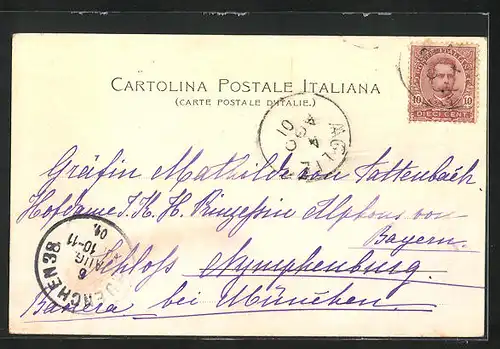 CARTOLINA POSTALE ITALIANA
(CARTE POSTALE D'ITALIE.)
10 10
DIECI CENT.
4 AGO 01
Gräfin Mathilde von Tattenbach
Hofdame I. K. H. Prinzessin Alphons von
Bayern.
Schloss Nymphenburg.
Bavera bei München.
MUENCHEN 38
6 AUG
10-11
01